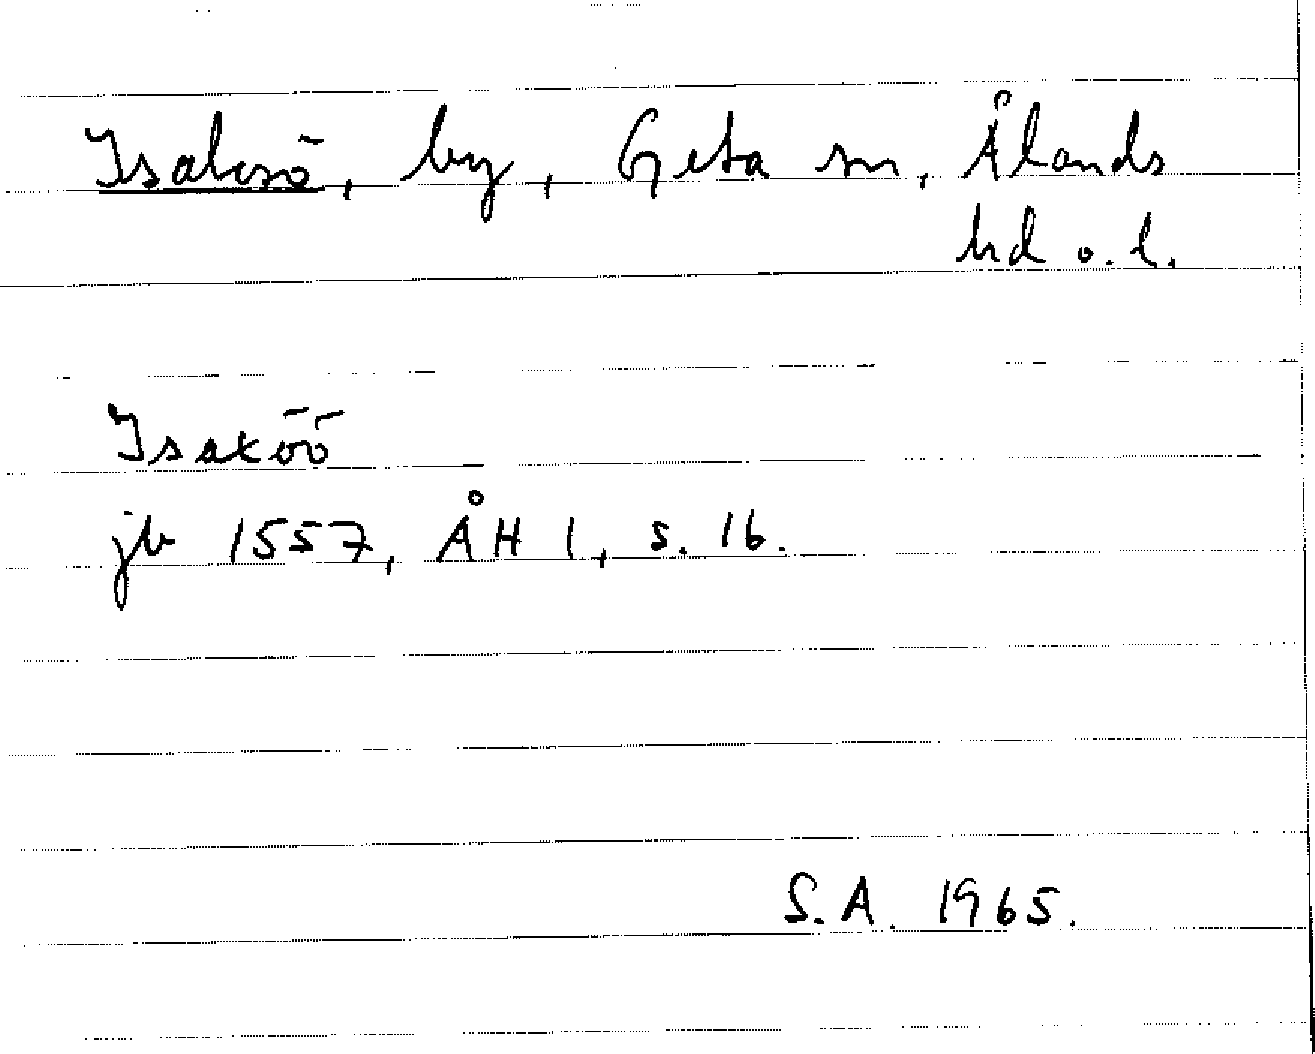 Isaksö, by, Geta sn, Ålands
hd o. l.
Isaköö
jb 1557, ÅH 1, s. 16.
S.A. 1965.